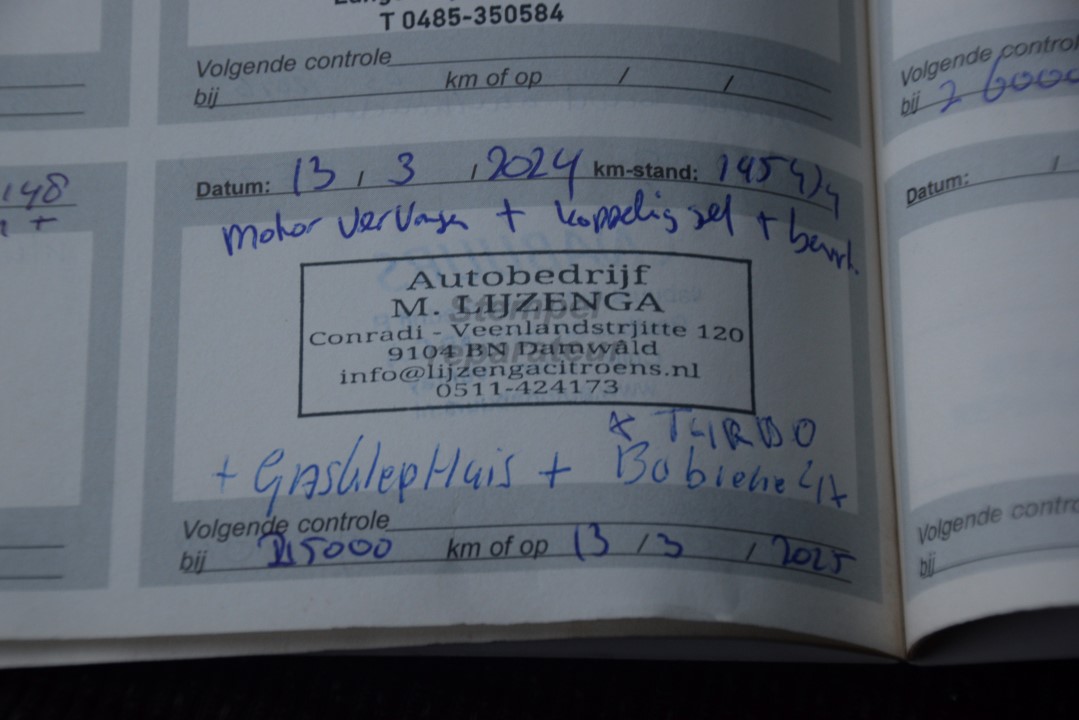 T 0485-350584
Volgende controle
bij km of op / /
Volgende control
bij 26000
148
+
Datum: 13 / 3 / 2024 km-stand:
motor vervangen + koppeling set +
Autobedrijf
M. LIJZENGA
Conradi - Veenlandstrjitte 120
9104 BN Damwâld
info@lijzengacitroens.nl
0511-424173
Stempel
reparateur
+ TURBO
+ GASKlepHuis + Bobiene 4x
Volgende controle
bij 215000 km of op 13 / 3 / 2025
Datum: /
Volgende contro
bij